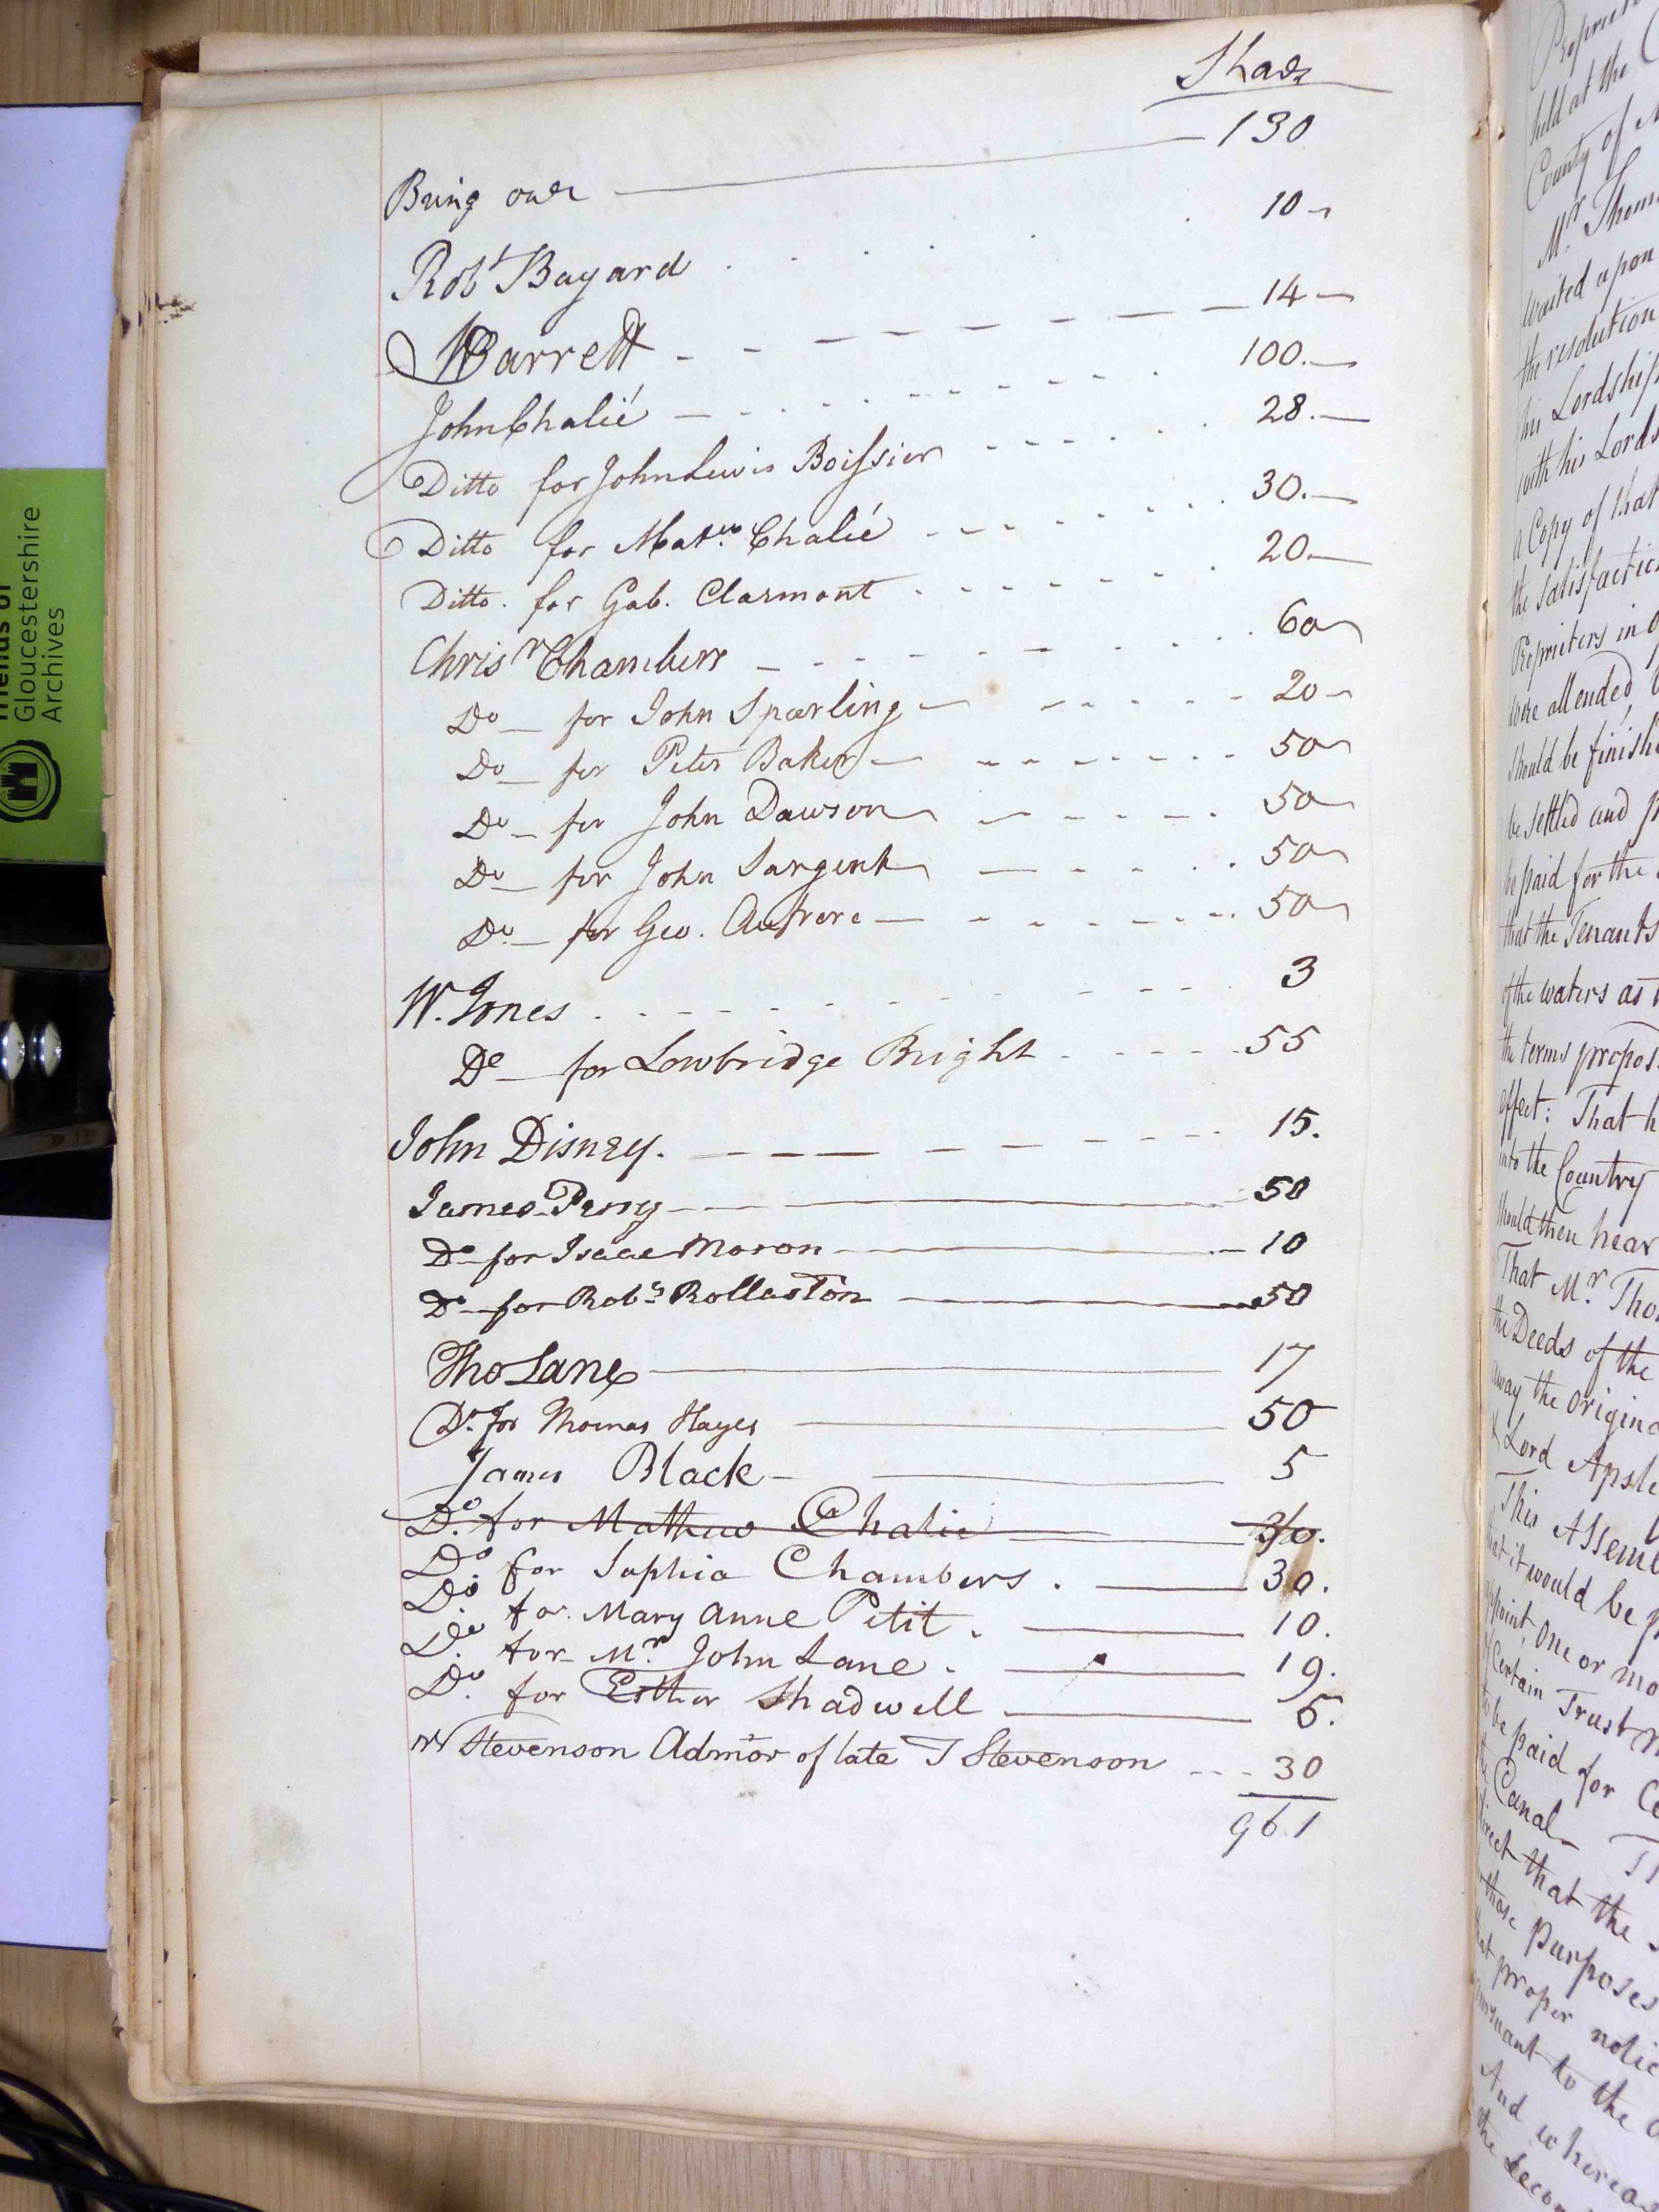 Shares
Bring over 130
Robt Bayard . . . . 10
W Barrett - - - - - - - 14
John Chalié - - - - - - - 100.
Ditto for John Lewis Boissier - - - - - - 28.
Ditto for Matw. Chalié - - - - - - 30.
Ditto. for Gab. Clarmont - - - - - - 20.
Chrisr Chambers - - - - - - - 60
Do for John Sparling - - - - - - 20
Do for Peter Baker - - - - - - 50
Do for John Dawson - - - - - - 50
Do for John Sargent - - - - - 50
Do for Geo. Aufrere - - - - - - 50
W. Jones . - - - - - - - - 3
Do for Lowbridge Bright - - - - - 55
John Disney. - - - - - - - 15.
James Perry 50
Do for Isaac Moron 10
Do for Robt Rollaston 50
Tho Lane 17
Do. for Thomas Hayes 50
James Black 5
Do. for Mathew Chalie 30.
Do. for Sophia Chambers . 30.
Do. for Mary Anne Petit . 10.
Do. for Mr John Lane . 19.
Do. for Esther Shadwell 5.
W Stevenson Admor of late T Stevenson - - - 30
961
Friends of
Gloucestershire
Archives
held at the
County of
Mr. Thom
waited upon
the resolution
his Lordship
with his Lords
a Copy of that
the satisfaction
Proprieters in
were attended
should be finish
be settled and p
be paid for the
that the Tenants
of the waters as
the terms propos
effect: That h
into the Country
should then hear
That Mr. Tho
the Deeds of the
away the Origina
Lord Apsle
This Assemb
that it would be p
appoint one or mo
Certain Trust
to be paid for Ce
the Canal
direct that the
those Purposes
that proper notic
pursuant to the
And whereas
the Secon